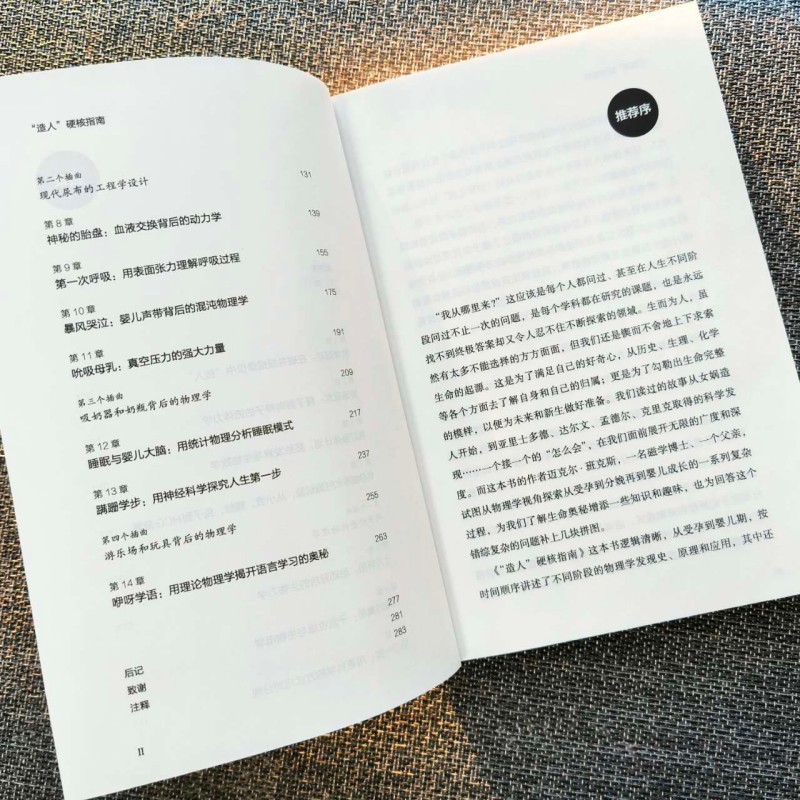 “造人”硬核指南
第二个插曲
现代尿布的工程学设计 131
第 8 章
神秘的胎盘：血液交换背后的动力学 139
第 9 章
第一次呼吸：用表面张力理解呼吸过程 155
第 10 章
暴风哭泣：婴儿声带背后的混沌物理学 175
第 11 章
吮吸母乳：真空压力的强大力量 191
第三个插曲
吸奶器和奶瓶背后的物理学 209
第 12 章
睡眠与婴儿大脑：用统计物理分析睡眠模式 217
第 13 章
蹒跚学步：用神经科学探究人生第一步 237
第四个插曲
游乐场和玩具背后的物理学 255
第 14 章
咿呀学语：用理论物理学揭开语言学习的奥秘 263
后记 277
致谢 281
注释 283
II
推荐序
“我从哪里来？”这应该是每个人都问过、甚至在人生不同阶
段问过不止一次的问题，是每个学科都在研究的课题，也是永远
找不到终极答案却又令人忍不住不断探索的领域。生而为人，虽
然有太多不能选择的方方面面，但我们还是锲而不舍地上下求索
生命的起源。这是为了满足自己的好奇心，从历史、生理、化学
等各个方面去了解自身和自己的归属；更是为了勾勒出生命完整
的模样，以便为未来和新生做好准备。我们读过的故事从女娲造
人开始，到亚里士多德、达尔文、孟德尔、克里克取得的科学发
现……一个接一个的“怎么会”，在我们面前展开无限的广度和深
度。而这本书的作者迈克尔·班克斯，一名磁学博士、一个父亲，
试图从物理学视角探索从受孕到分娩再到婴儿成长的一系列复杂
过程，为我们了解生命奥秘增添一些知识和趣味，也为回答这个
错综复杂的问题补上几块拼图。
《“造人”硬核指南》这本书逻辑清晰，从受孕到婴儿期，按
时间顺序讲述了不同阶段的物理学发现史、原理和应用，其中还